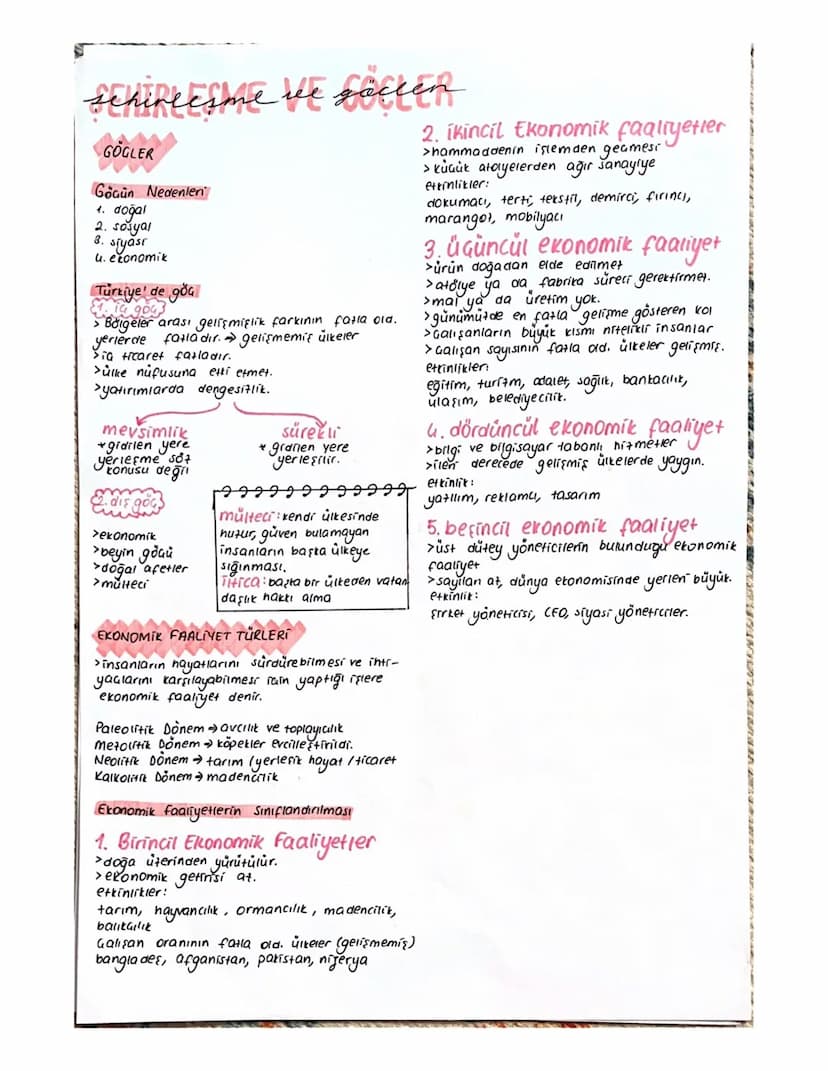 ŞEHİRLEŞME VE GÖÇLER
şehirleşme ve göçler
GÖÇLER
Göçün Nedenleri
1. doğal
2. sosyal
3. siyasi
4. ekonomik
Türkiye'de göç
1. iç göç
> Bölgeler arası gelişmişlik farkının fazla old.
yerlerde fazladır. → gelişmemiş ülkeler
>iç ticaret fazladır.
>ülke nüfusuna etki etmez.
>yatırımlarda dengesizlik.
mevsimlik
*gidilen yere
yerleşme söz
konusu değil
sürekli
* gidilen yere
yerleşilir.
2. dış göç
>ekonomik
>beyin göçü
>doğal afetler
>mülteci
mülteci: kendi ülkesinde
huzur, güven bulamayan
insanların başka ülkeye
sığınması.
iltica: başka bir ülkeden vatan
daşlık hakkı alma
EKONOMİK FAALİYET TÜRLERİ
>insanların hayatlarını sürdürebilmesi ve ihti-
yaçlarını karşılayabilmesi için yaptığı işlere
ekonomik faaliyet denir.
Paleolitik Dönem → avcılık ve toplayıcılık
Mezolitik Dönem → köpekler evcilleştirildi.
Neolitik Dönem → tarım (yerleşik hayat / ticaret
Kalkolitik Dönem → madencilik
Ekonomik Faaliyetlerin Sınıflandırılması
1. Birincil Ekonomik Faaliyetler
>doğa üzerinden yürütülür.
>ekonomik getirisi az.
etkinlikler:
tarım, hayvancılık, ormancılık, madencilik,
balıkçılık
çalışan oranının fazla old. ülkeler (gelişmemiş)
bangladeş, afganistan, pakistan, nijerya
2. ikincil Ekonomik faaliyetler
>hammaddenin işlemden geçmesi
>küçük atölyelerden ağır sanayiye
etkinlikler:
dokumacı, terzi, tekstil, demirci, fırıncı,
marangoz, mobilyacı
3. üçüncül ekonomik faaliyet
>ürün doğadan elde edilmez
>atölye ya da fabrika süreci gerektirmez.
>mal ya da üretim yok.
>günümüzde en fazla gelişme gösteren kol
>çalışanların büyük kısmı nitelikli insanlar
>çalışan sayısının fazla old. ülkeler gelişmiş.
etkinlikler:
eğitim, turizm, adalet, sağlık, bankacılık,
ulaşım, belediyecilik.
4. dördüncül ekonomik faaliyet
>bilgi ve bilgisayar tabanlı hizmetler
>ileri derecede gelişmiş ülkelerde yaygın.
etkinlik:
yazılım, reklamcı, tasarım
5. beşincil ekonomik faaliyet
>üst düzey yöneticilerin bulunduğu ekonomik
faaliyet
>sayıları az, dünya ekonomisinde yerleri büyük.
etkinlik:
şirket yöneticisi, CEO, siyasi yöneticiler.